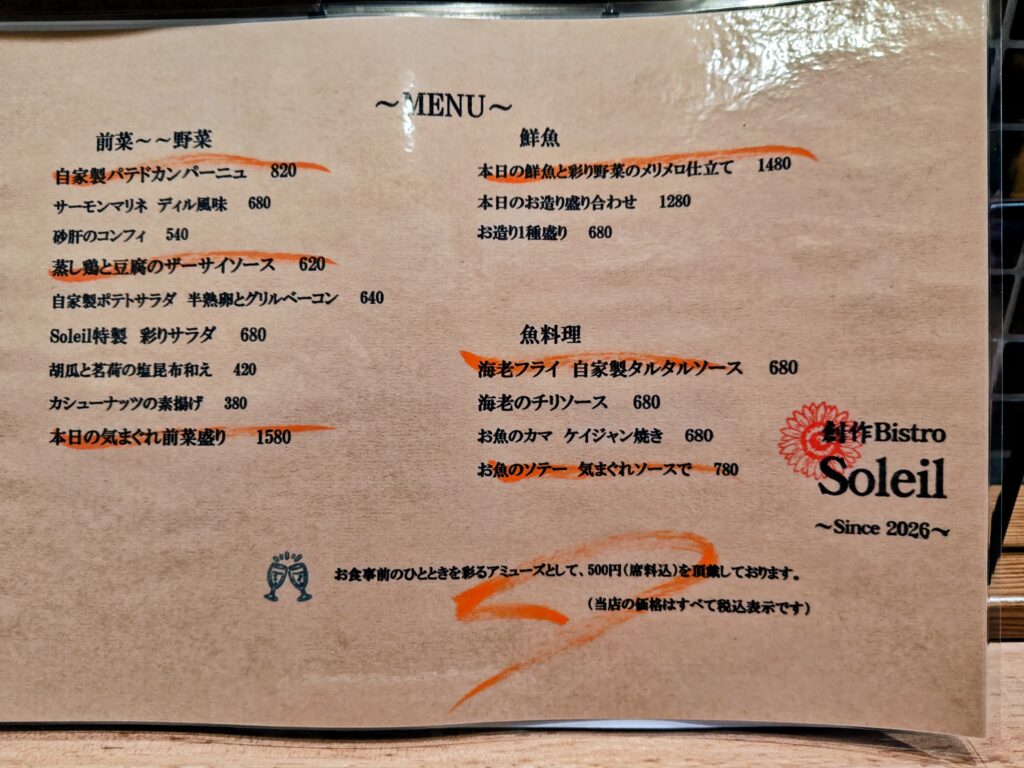 ~MENU~
前菜~~野菜
自家製パテドカンパーニュ 820
サーモンマリネ ディル風味 680
砂肝のコンフィ 540
蒸し鶏と豆腐のザーサイソース 620
自家製ポテトサラダ 半熟卵とグリルベーコン 640
Soleil特製 彩りサラダ 680
胡瓜と茗荷の塩昆布和え 420
カシューナッツの素揚げ 380
本日の気まぐれ前菜盛り 1580
鮮魚
本日の鮮魚と彩り野菜のメリメロ仕立て 1480
本日のお造り盛り合わせ 1280
お造り1種盛り 680
魚料理
海老フライ 自家製タルタルソース 680
海老のチリソース 680
お魚のカマ ケイジャン焼き 680
お魚のソテー 気まぐれソースで 780
創作Bistro
Soleil
~Since 2026~
お食事前のひとときを彩るアミューズとして、500円(席料込)を頂戴しております。
(当店の価格はすべて税込表示です)